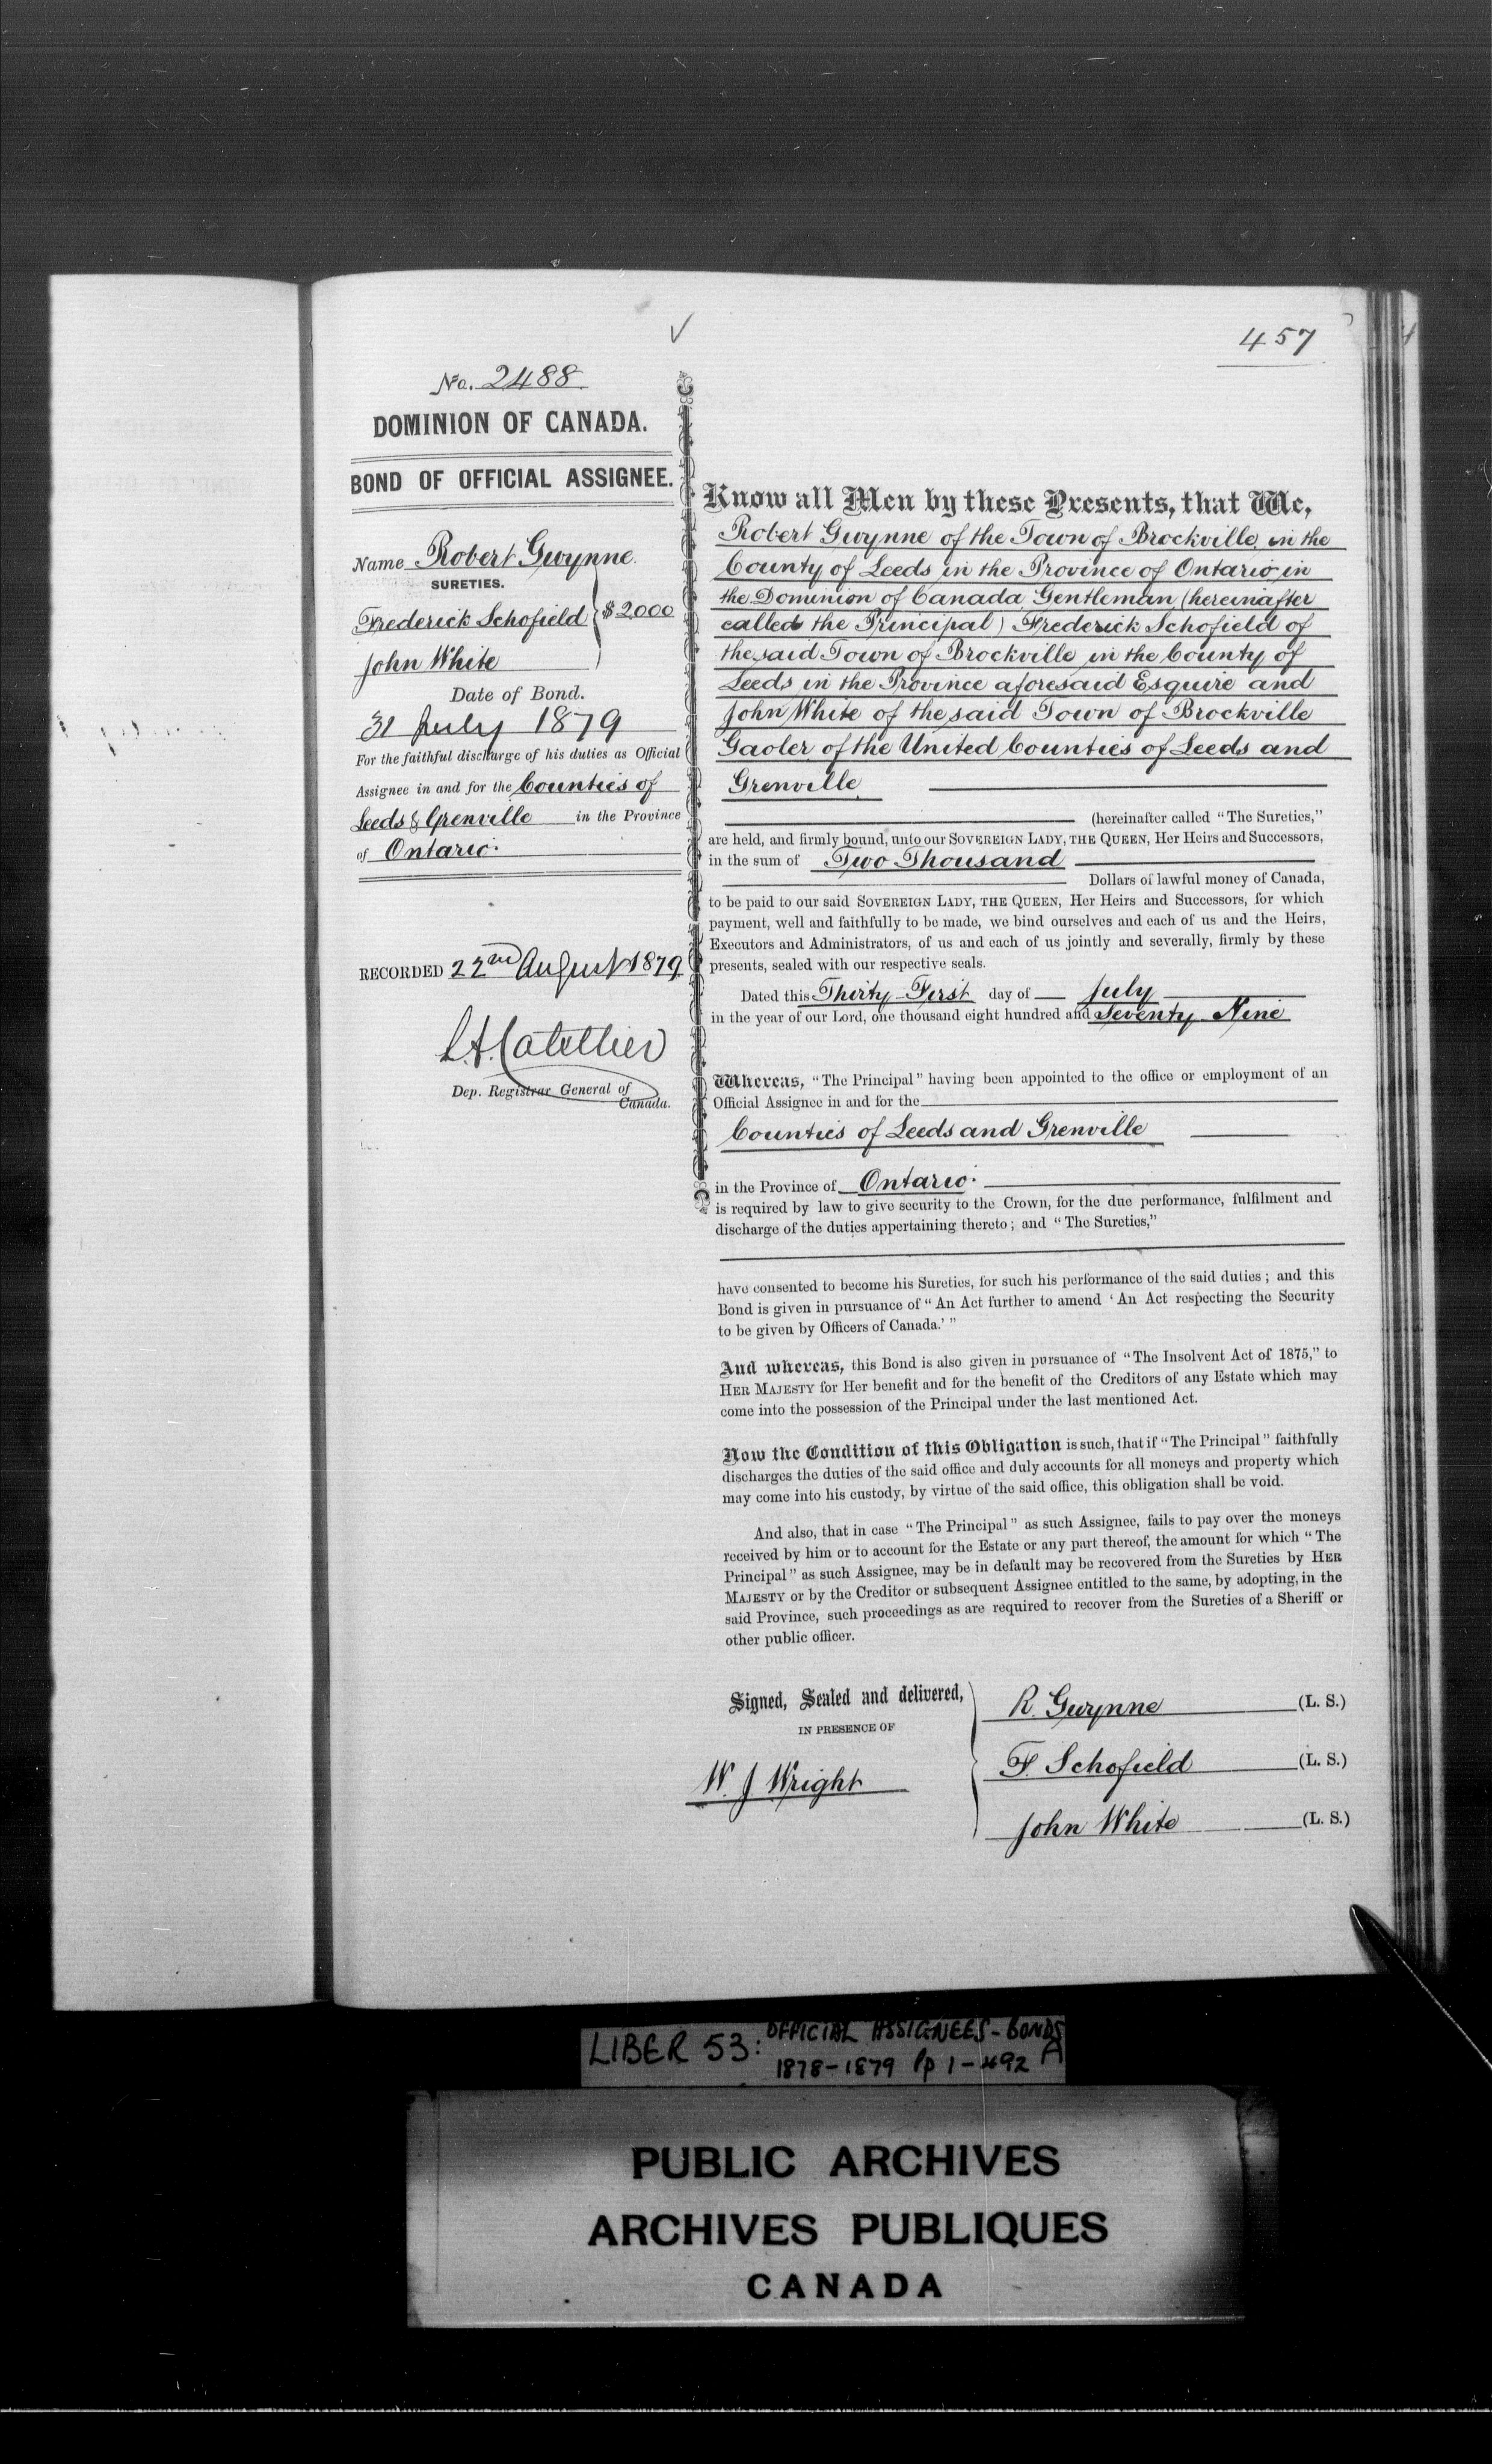 457
No. 2488
DOMINION OF CANADA.
BOND OF OFFICIAL ASSIGNEE.
Name Robert Gwynne.
SURETIES.
Frederick Schofield } $2000
John White
Date of Bond.
31 July 1879
For the faithful discharge of his duties as Official
Assignee in and for the Counties of
Leeds & Grenville in the Province
of Ontario.
RECORDED 22nd August 1879
L.A. Catellier
Dep. Registrar General of
Canada.
Know all Men by these Presents, that We,
Robert Gwynne of the Town of Brockville in the
County of Leeds in the Province of Ontario in
the Dominion of Canada Gentleman (hereinafter
called the Principal) Frederick Schofield of
the said Town of Brockville in the County of
Leeds in the Province aforesaid Esquire and
John White of the said Town of Brockville
Gaoler of the United Counties of Leeds and
Grenville
(hereinafter called "The Sureties,"
are held, and firmly bound, unto our SOVEREIGN LADY, THE QUEEN, Her Heirs and Successors,
in the sum of Two Thousand
Dollars of lawful money of Canada,
to be paid to our said SOVEREIGN LADY, THE QUEEN, Her Heirs and Successors, for which
payment, well and faithfully to be made, we bind ourselves and each of us and the Heirs,
Executors and Administrators, of us and each of us jointly and severally, firmly by these
presents, sealed with our respective seals.
Dated this Thirty-First day of July
in the year of our Lord, one thousand eight hundred and Seventy Nine
Whereas, "The Principal" having been appointed to the office or employment of an
Official Assignee in and for the
Counties of Leeds and Grenville
in the Province of Ontario.
is required by law to give security to the Crown, for the due performance, fulfilment and
discharge of the duties appertaining thereto; and "The Sureties,"
have consented to become his Sureties, for such his performance of the said duties; and this
Bond is given in pursuance of "An Act further to amend 'An Act respecting the Security
to be given by Officers of Canada.'"
And whereas, this Bond is also given in pursuance of "The Insolvent Act of 1875," to
HER MAJESTY for Her benefit and for the benefit of the Creditors of any Estate which may
come into the possession of the Principal under the last mentioned Act.
Now the Condition of this Obligation is such, that if "The Principal" faithfully
discharges the duties of the said office and duly accounts for all moneys and property which
may come into his custody, by virtue of the said office, this obligation shall be void.
And also, that in case "The Principal" as such Assignee, fails to pay over the moneys
received by him or to account for the Estate or any part thereof, the amount for which "The
Principal" as such Assignee, may be in default may be recovered from the Sureties by HER
MAJESTY or by the Creditor or subsequent Assignee entitled to the same, by adopting, in the
said Province, such proceedings as are required to recover from the Sureties of a Sheriff or
other public officer.
Signed, Sealed and delivered,
IN PRESENCE OF
W. J Wright
R. Gwynne (L. S.)
F. Schofield (L. S.)
John White (L. S.)
LIBER 53: OFFICIAL ASSIGNEES-BONDS
1878-1879 Pp 1-492 A
PUBLIC ARCHIVES
ARCHIVES PUBLIQUES
CANADA